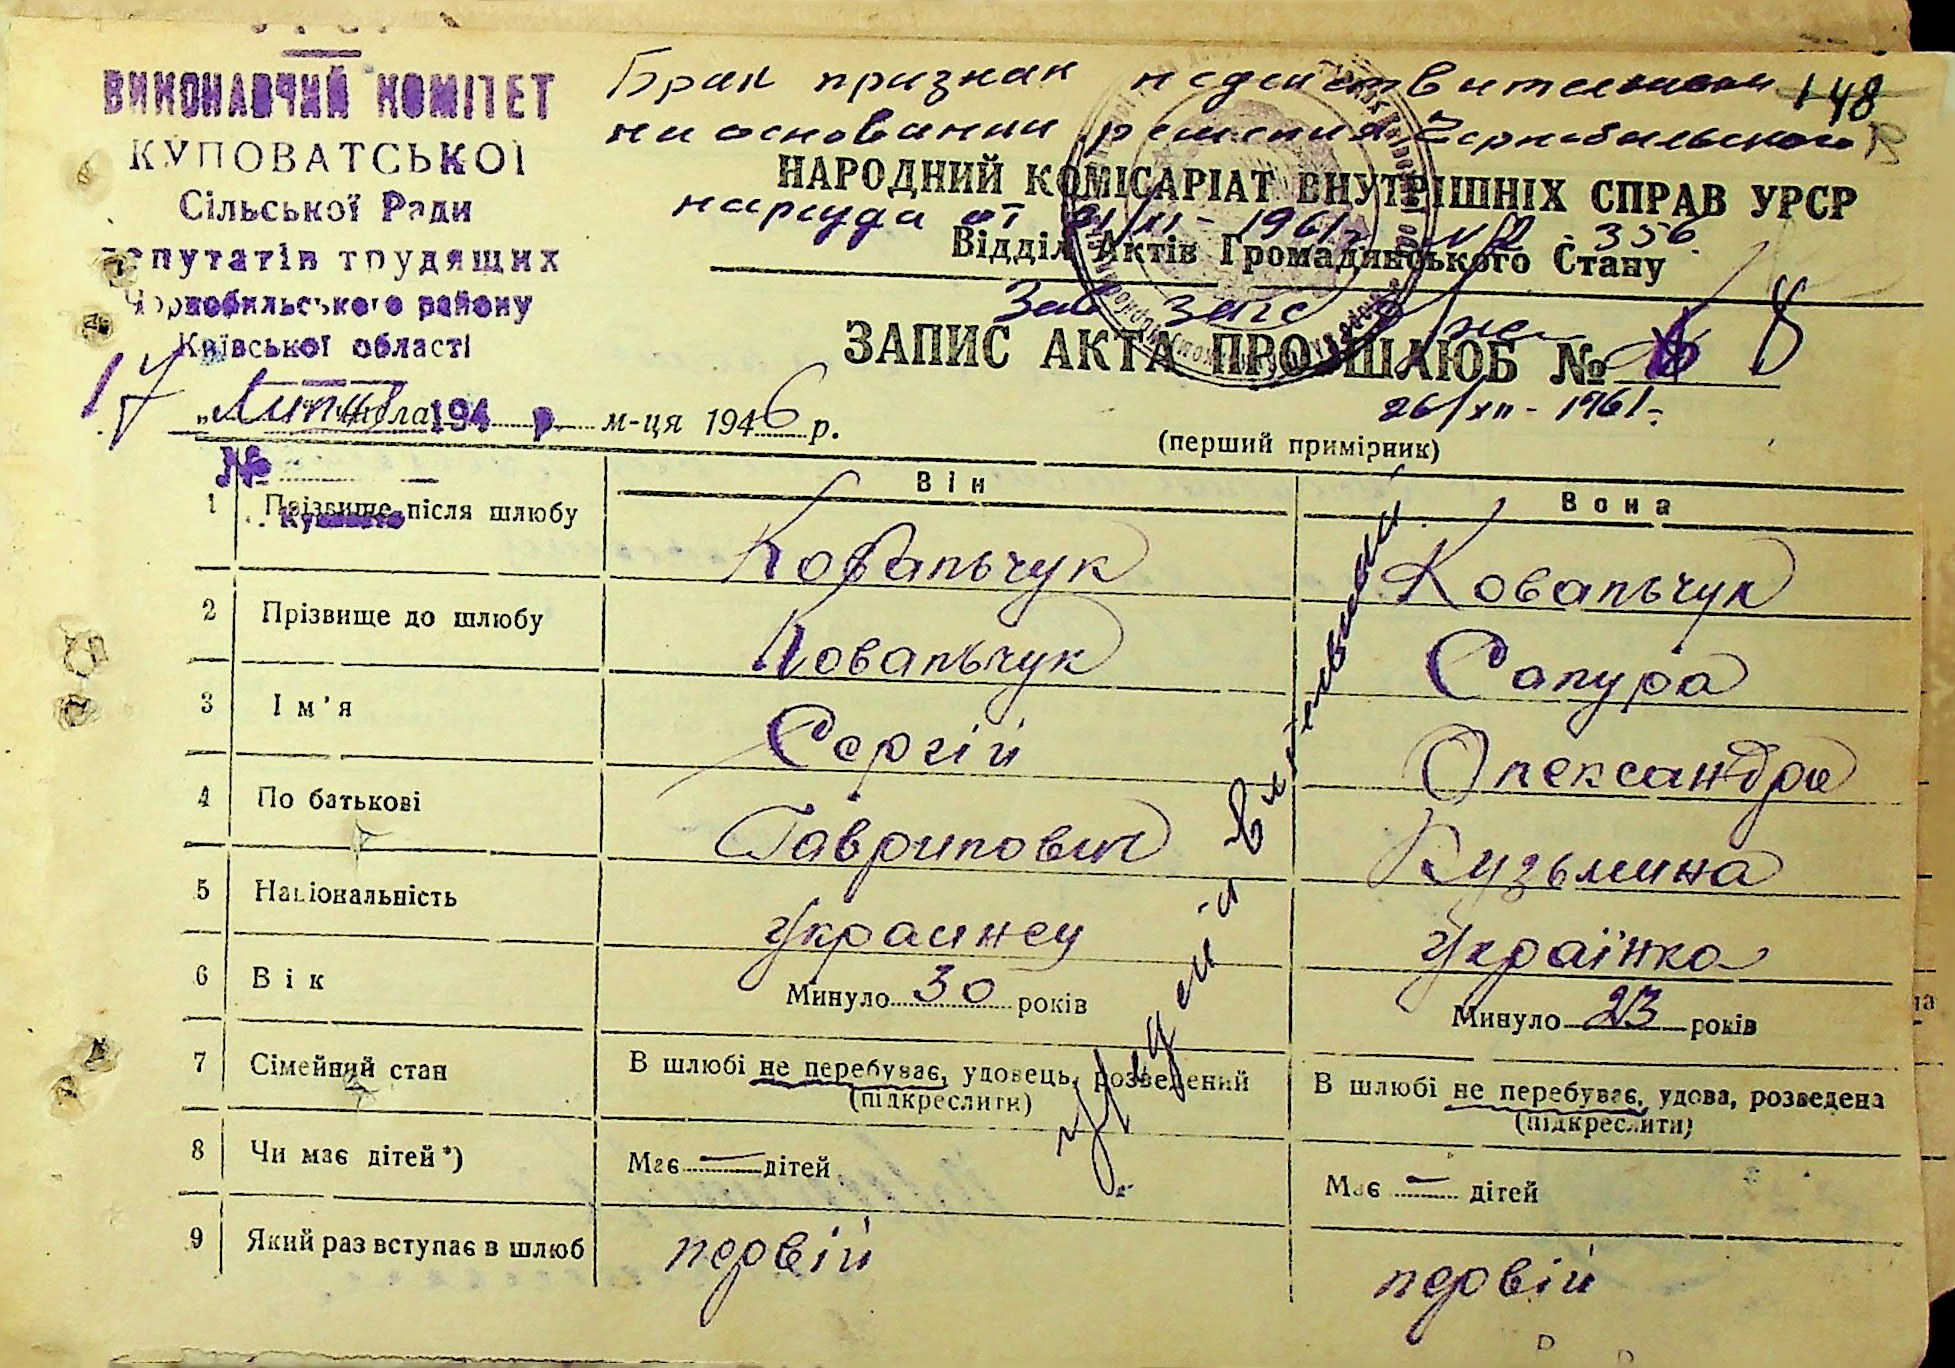 УРСР
ВИКОНАВЧИЙ КОМІТЕТ
КУПОВАТСЬКОЇ
Сільської Ради
депутатів трудящих
Чорнобильського району
Київської області
148
Брак признан недействительным
на основании решения Чернобыльского
нарсуда от 21/XI - 1961г № 356
Зав загс
26/XII - 1961г
НАРОДНИЙ КОМІСАРІАТ ВНУТРІШНІХ СПРАВ УРСР
Відділ Актів Громадянського Стану
ЗАПИС АКТА ПРО ШЛЮБ № 8
17 „Липня м-ця 1946 р.
числа 194 р
(перший примірник)
№
Він
Вона
1 Прізвище після шлюбу Ковальчук Ковальчук
2 Прізвище до шлюбу Ковальчук Сапура
3 Ім'я Сергій Олександра
4 По батькові Гаврилович Кузьмина
5 Національність Украинец Українка
6 Вік Минуло 30 років Минуло 23 років
7 Сімейний стан В шлюбі не перебуває, удовець, розведений В шлюбі не перебуває, удова, розведена
(підкреслити) (підкреслити)
8 Чи має дітей*) Має — дітей Має — дітей
9 Який раз вступає в шлюб первій первій